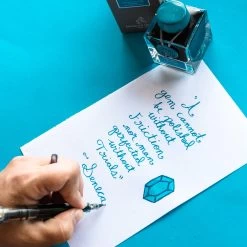 "A
gem cannot
be polished
without
Friction,
nor man
perfected
without
Trials"
- Seneca